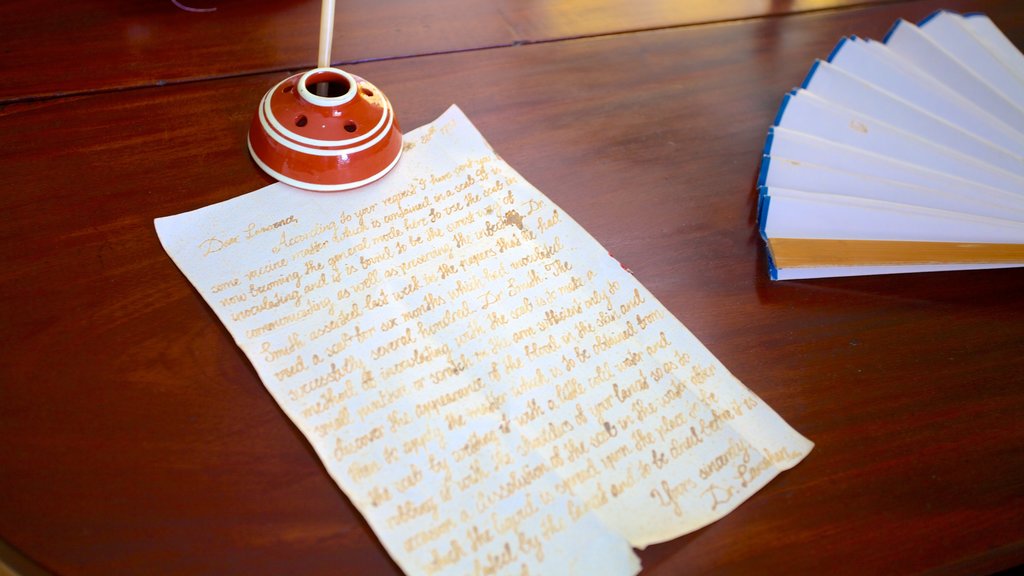 20th
Dear Lawrence,
According to your request I have sent you
some vaccine matter which is contained in a scab it is
now becoming the general mode here to use the scab in
inoculating and it is found to be the surest way of
communicating as well as preserving the infection Dr.
Smith asserted last week in the papers that he had
used a scab for six months which had inoculated
successfully several hundred. Dr Smith. The
method of inoculating with the scab is to make a
small puncture or scratch in the arm sufficient only to
discover the appearance of the blood in the skin and
then to apply the matter which is to be obtained from
the scab by wetting it with a little cold water and
rubbing it with the of your lancet so as to
occasion a dissolution of the scab in the water after
which the liquid is spread upon the place to be
by the lancet and to be dried before it is
Yours sincerely
Dr.